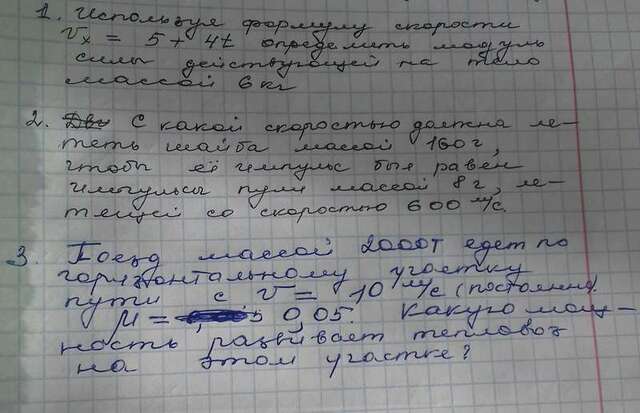 1. Используя формулу скорости
Vx = 5 + 4t определить модуль
силы действующей на тело
массой 6 кг
2. С какой скоростью должна ле-
теть шайба массой 160 г,
чтобы её импульс был равен
импульсы пули массой 8 г, ле-
тящей со скоростью 600 м/с.
3. Поезд массой 2000т едет по
горизонтальному участку
пути с V = 10 м/с (постоянно).
μ = 0,05. какую мощ-
ность развивает тепловоз
на этом участке?